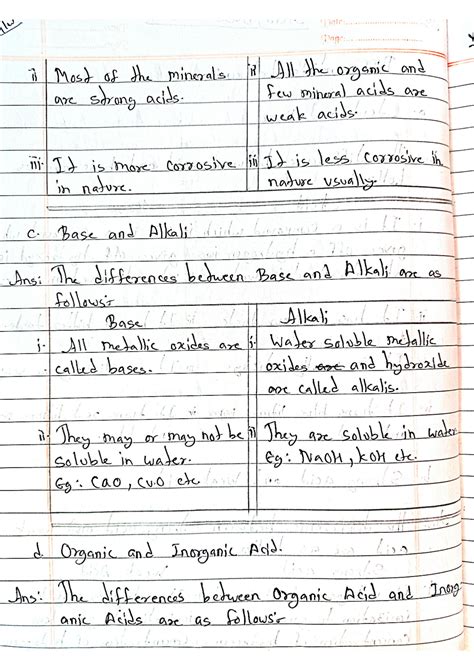 Date
Page
ii Most of the minerals are strong acids.
ii All the organic and few mineral acids are weak acids.
iii. It is more corrosive in nature.
iii It is less corrosive in nature usually.
c. Base and Alkali
Ans: The differences between Base and Alkali are as
follows:-
Base
Alkali
i. All metallic oxides are called bases.
i. Water soluble metallic oxides are and hydroxide are called alkalis.
ii. They may or may not be soluble in water.
Eg: CaO, CuO etc
ii They are soluble in water
Eg: NaOH, KOH etc.
d. Organic and Inorganic Acid.
Ans: The differences between Organic Acid and Inorg
anic Acids are as follows:-